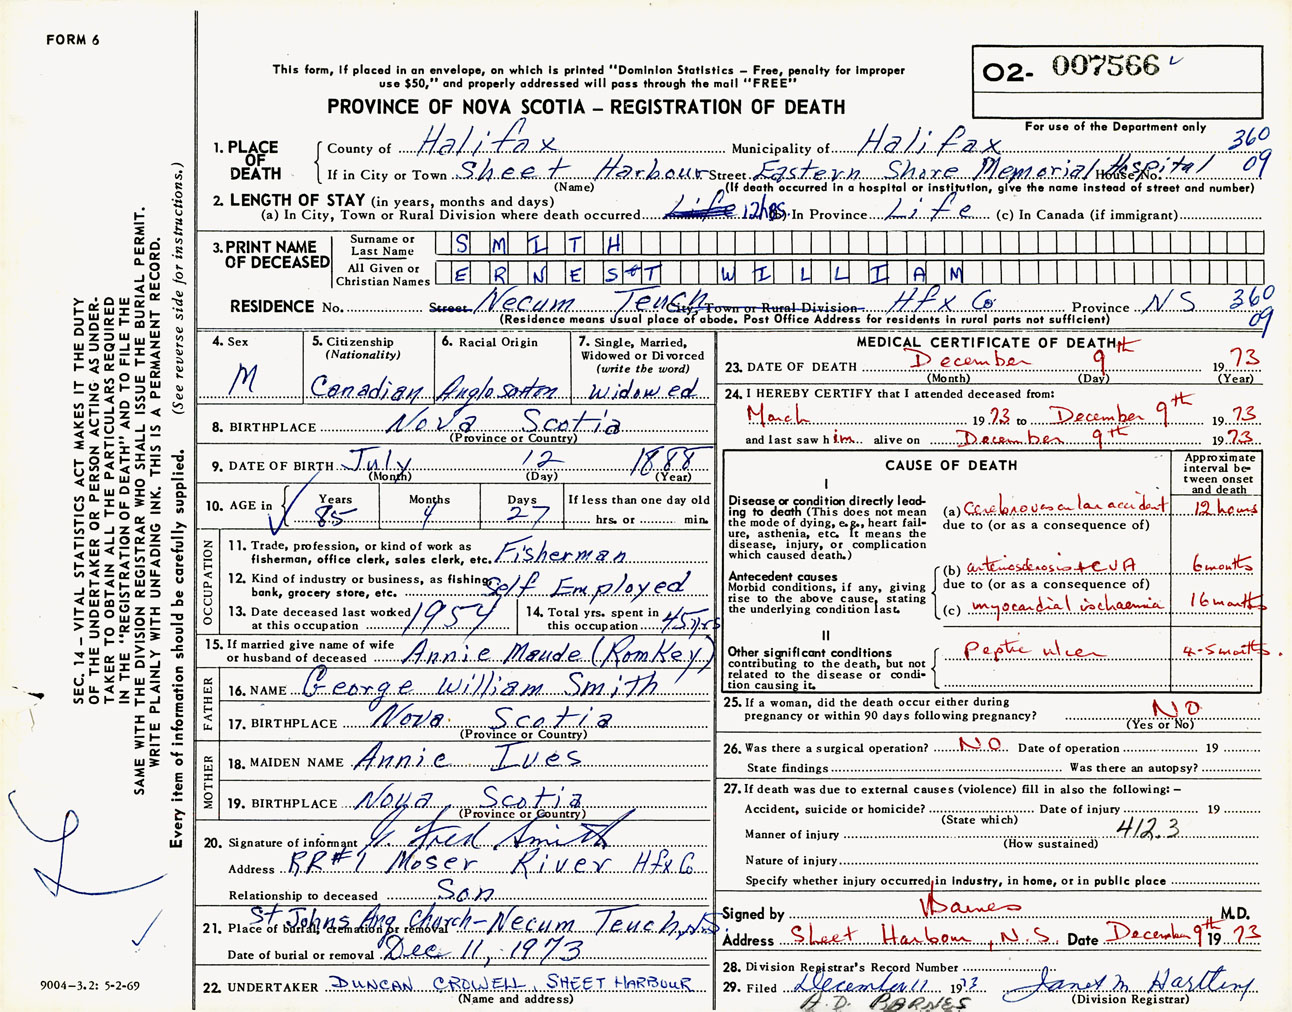 FORM 6
This form, if placed in an envelope, on which is printed "Dominion Statistics – Free, penalty for improper
use $50," and properly addressed will pass through the mail "FREE"
PROVINCE OF NOVA SCOTIA – REGISTRATION OF DEATH
02- 007566
For use of the Department only
360
09
1. PLACE OF DEATH
County of Halifax Municipality of Halifax
If in City or Town Sheet Harbour Street Eastern Shore Memorial Hospital House No.
(Name) (If death occurred in a hospital or institution, give the name instead of street and number)
2. LENGTH OF STAY (in years, months and days)
(a) In City, Town or Rural Division where death occurred Life 12 hrs (b) In Province Life (c) In Canada (if immigrant)
3. PRINT NAME OF DECEASED
Surname or Last Name SMITH
All Given or Christian Names ERNEST WILLIAM
RESIDENCE No. Street Necum Teuch City, Town or Rural Division Hfx Co Province NS 360
09
(Residence means usual place of abode. Post Office Address for residents in rural parts not sufficient)
4. Sex M
5. Citizenship (Nationality) Canadian
6. Racial Origin Anglo saxton
7. Single, Married, Widowed or Divorced (write the word) Widowed
8. BIRTHPLACE Nova Scotia
(Province or Country)
9. DATE OF BIRTH July 12 1888
(Month) (Day) (Year)
10. AGE in Years 85 Months 4 Days 27 If less than one day old
hrs. or min.
OCCUPATION
11. Trade, profession, or kind of work as
fisherman, office clerk, sales clerk, etc. Fisherman
12. Kind of industry or business, as fishing,
bank, grocery store, etc. Self Employed
13. Date deceased last worked
at this occupation 1954
14. Total yrs. spent in
this occupation 45 yrs
15. If married give name of wife
or husband of deceased Annie Maude (Romkey)
FATHER
16. NAME George William Smith
17. BIRTHPLACE Nova Scotia
(Province or Country)
MOTHER
18. MAIDEN NAME Annie Ives
19. BIRTHPLACE Nova Scotia
(Province or Country)
20. Signature of informant Fred Smith
Address RR#1 Moser River Hfx Co
Relationship to deceased Son
21. Place of burial, cremation or removal St Johns Ang Church - Necum Teuch, NS
Date of burial or removal Dec 11, 1973
22. UNDERTAKER DUNCAN CROWELL, SHEET HARBOUR
(Name and address)
MEDICAL CERTIFICATE OF DEATH
23. DATE OF DEATH December 9th 1973
(Month) (Day) (Year)
24. I HEREBY CERTIFY that I attended deceased from:
March 1973 to December 9th 1973
and last saw him alive on December 9th 1973
CAUSE OF DEATH
Approximate interval between onset and death
I
Disease or condition directly lead-
ing to death (This does not mean
the mode of dying, e.g., heart fail-
ure, asthenia, etc. It means the
disease, injury, or complication
which caused death.)
(a) cerebrovascular accident 12 hours
due to (or as a consequence of)
Antecedent causes
Morbid conditions, if any, giving
rise to the above cause, stating
the underlying condition last.
(b) arteriosclerosis + CVA 6 months
due to (or as a consequence of)
(c) myocardial ischaemia 16 months
II
Other significant conditions
contributing to the death, but not
related to the disease or condi-
tion causing it.
Peptic ulcer 4-5 months.
25. If a woman, did the death occur either during
pregnancy or within 90 days following pregnancy? NO
(Yes or No)
26. Was there a surgical operation? NO Date of operation 19
State findings Was there an autopsy?
27. If death was due to external causes (violence) fill in also the following: –
Accident, suicide or homicide? Date of injury 19
(State which)
412.3
Manner of injury
(How sustained)
Nature of injury
Specify whether injury occurred in industry, in home, or in public place
Signed by Barnes M.D.
Address Sheet Harbour, N.S. Date December 9th 1973
28. Division Registrar's Record Number
29. Filed December 11 1973 Janet M Hartling
(Division Registrar)
A.D. BARNES
SEC. 14 – VITAL STATISTICS ACT MAKES IT THE DUTY
OF THE UNDERTAKER OR PERSON ACTING AS UNDER-
TAKER TO OBTAIN ALL THE PARTICULARS REQUIRED
IN THE "REGISTRATION OF DEATH" AND TO FILE THE
SAME WITH THE DIVISION REGISTRAR WHO SHALL ISSUE THE BURIAL PERMIT.
WRITE PLAINLY WITH UNFADING INK. THIS IS A PERMANENT RECORD.
Every item of information should be carefully supplied. (See reverse side for instructions.)
9004-3.2: 5-2-69